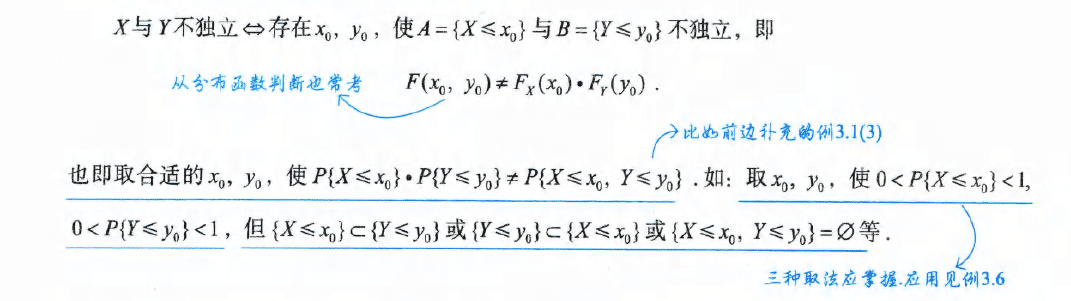 X与Y不独立⇔存在x₀, y₀, 使A={X≤x₀}与B={Y≤y₀}不独立, 即
从分布函数判断也常考 F(x₀, y₀)≠F_X(x₀)•F_Y(y₀).
比如前边补充的例3.1(3)
也即取合适的x₀, y₀, 使P{X≤x₀}•P{Y≤y₀}≠P{X≤x₀, Y≤y₀}.如: 取x₀, y₀, 使0<P{X≤x₀}<1,
0<P{Y≤y₀}<1, 但{X≤x₀}⊂{Y≤y₀}或{Y≤y₀}⊂{X≤x₀}或{X≤x₀, Y≤y₀}=∅等.
三种取法应掌握.应用见例3.6